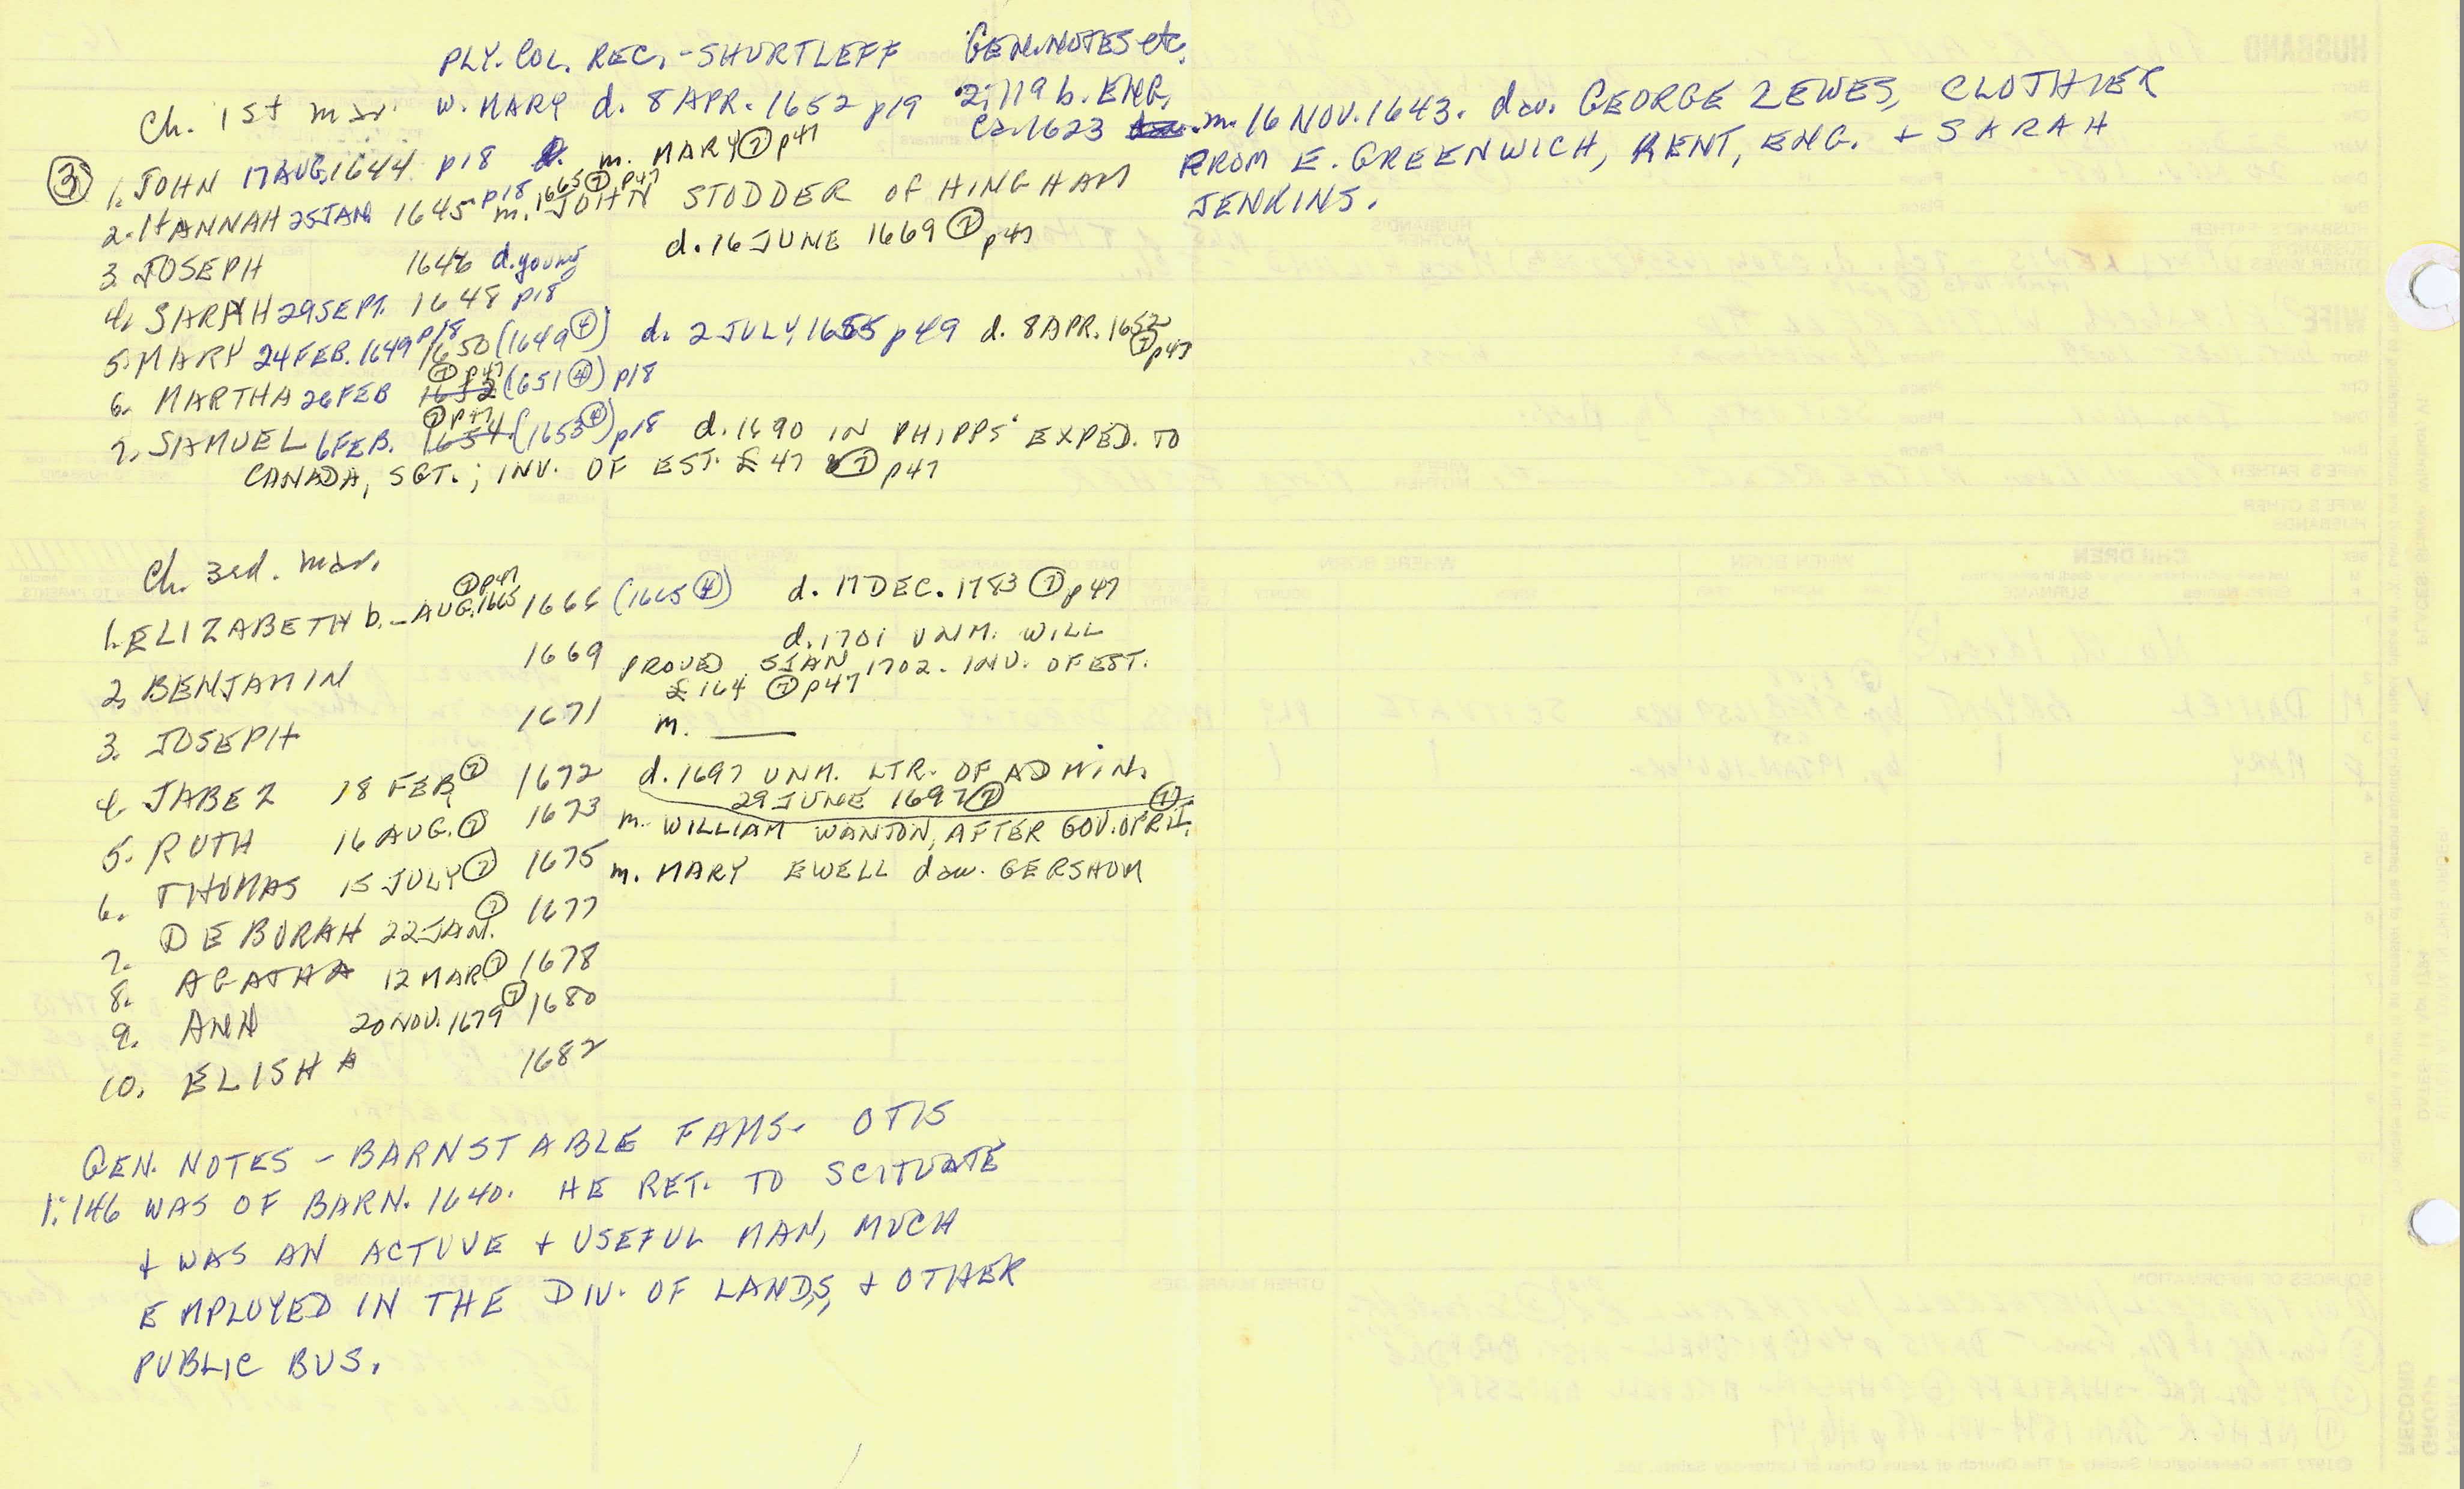 PLY. COL. REC. - SHURTLEFF GEN. NOTES etc.
Ch. 1st mar. W. MARY d. 8 APR. 1652 p19 2:119 b. ENG.
ca. 1623 m. 16 NOV. 1643. dau. GEORGE LEWES, CLOTHIER
FROM E. GREENWICH, KENT, ENG. + SARAH
JENKINS.
③ 1. JOHN 17 AUG. 1644 p18 m. MARY ⑦ p47
1665 ⑦ p47
2. HANNAH 25 JAN 1645 p18 m. JOHN STODDER OF HINGHAM
d. 16 JUNE 1669 ⑦ p47
3. JOSEPH 1646 d. young
4. SARAH 29 SEPT. 1648 p18
5. MARY 24 FEB. 1649 p18 1650 (1649 ④) d. 2 JULY, 1655 p49 d. 8 APR. 1652 ⑦ p47
⑦ p47
6. MARTHA 26 FEB 1652 (1651 ④) p18
⑦ p47
7. SAMUEL 6 FEB. 1654 (1653 ④) p18 d. 1690 IN PHIPPS' EXPED. TO
CANADA, SGT.; INV. OF EST. £47 ⑦ p47
Ch. 3rd. mar.
⑦ p47
1. ELIZABETH b. _ AUG. 1665 1666 (1665 ④) d. 17 DEC. 1783 ⑦ p47
2. BENJAMIN 1669 d. 1701 UNM. WILL
PROVED 5 JAN 1702. INV. OF EST.
£164 ⑦ p47
3. JOSEPH 1671 m. ____
4. JABEZ 18 FEB ⑦ 1672 d. 1697 UNM. LTR. OF ADMIN.
29 JUNE 1697 ⑦
5. RUTH 16 AUG. ⑦ 1673 m. WILLIAM WANTON, AFTER GOV. OF R.I. ⑦
6. THOMAS 15 JULY ⑦ 1675 m. MARY EWELL dau. GERSHOM
7. DEBORAH 22 JAN. ⑦ 1677
8. AGATHA 12 MAR ⑦ 1678
9. ANN 20 NOV. 1679 ⑦ 1680
10. ELISHA 1682
GEN. NOTES - BARNSTABLE FAMS. OTIS
1:146 WAS OF BARN. 1640. HE RET. TO SCITUATE
+ WAS AN ACTUVE + USEFUL MAN, MUCH
EMPLOYED IN THE DIV. OF LANDS, + OTHER
PUBLIC BUS.